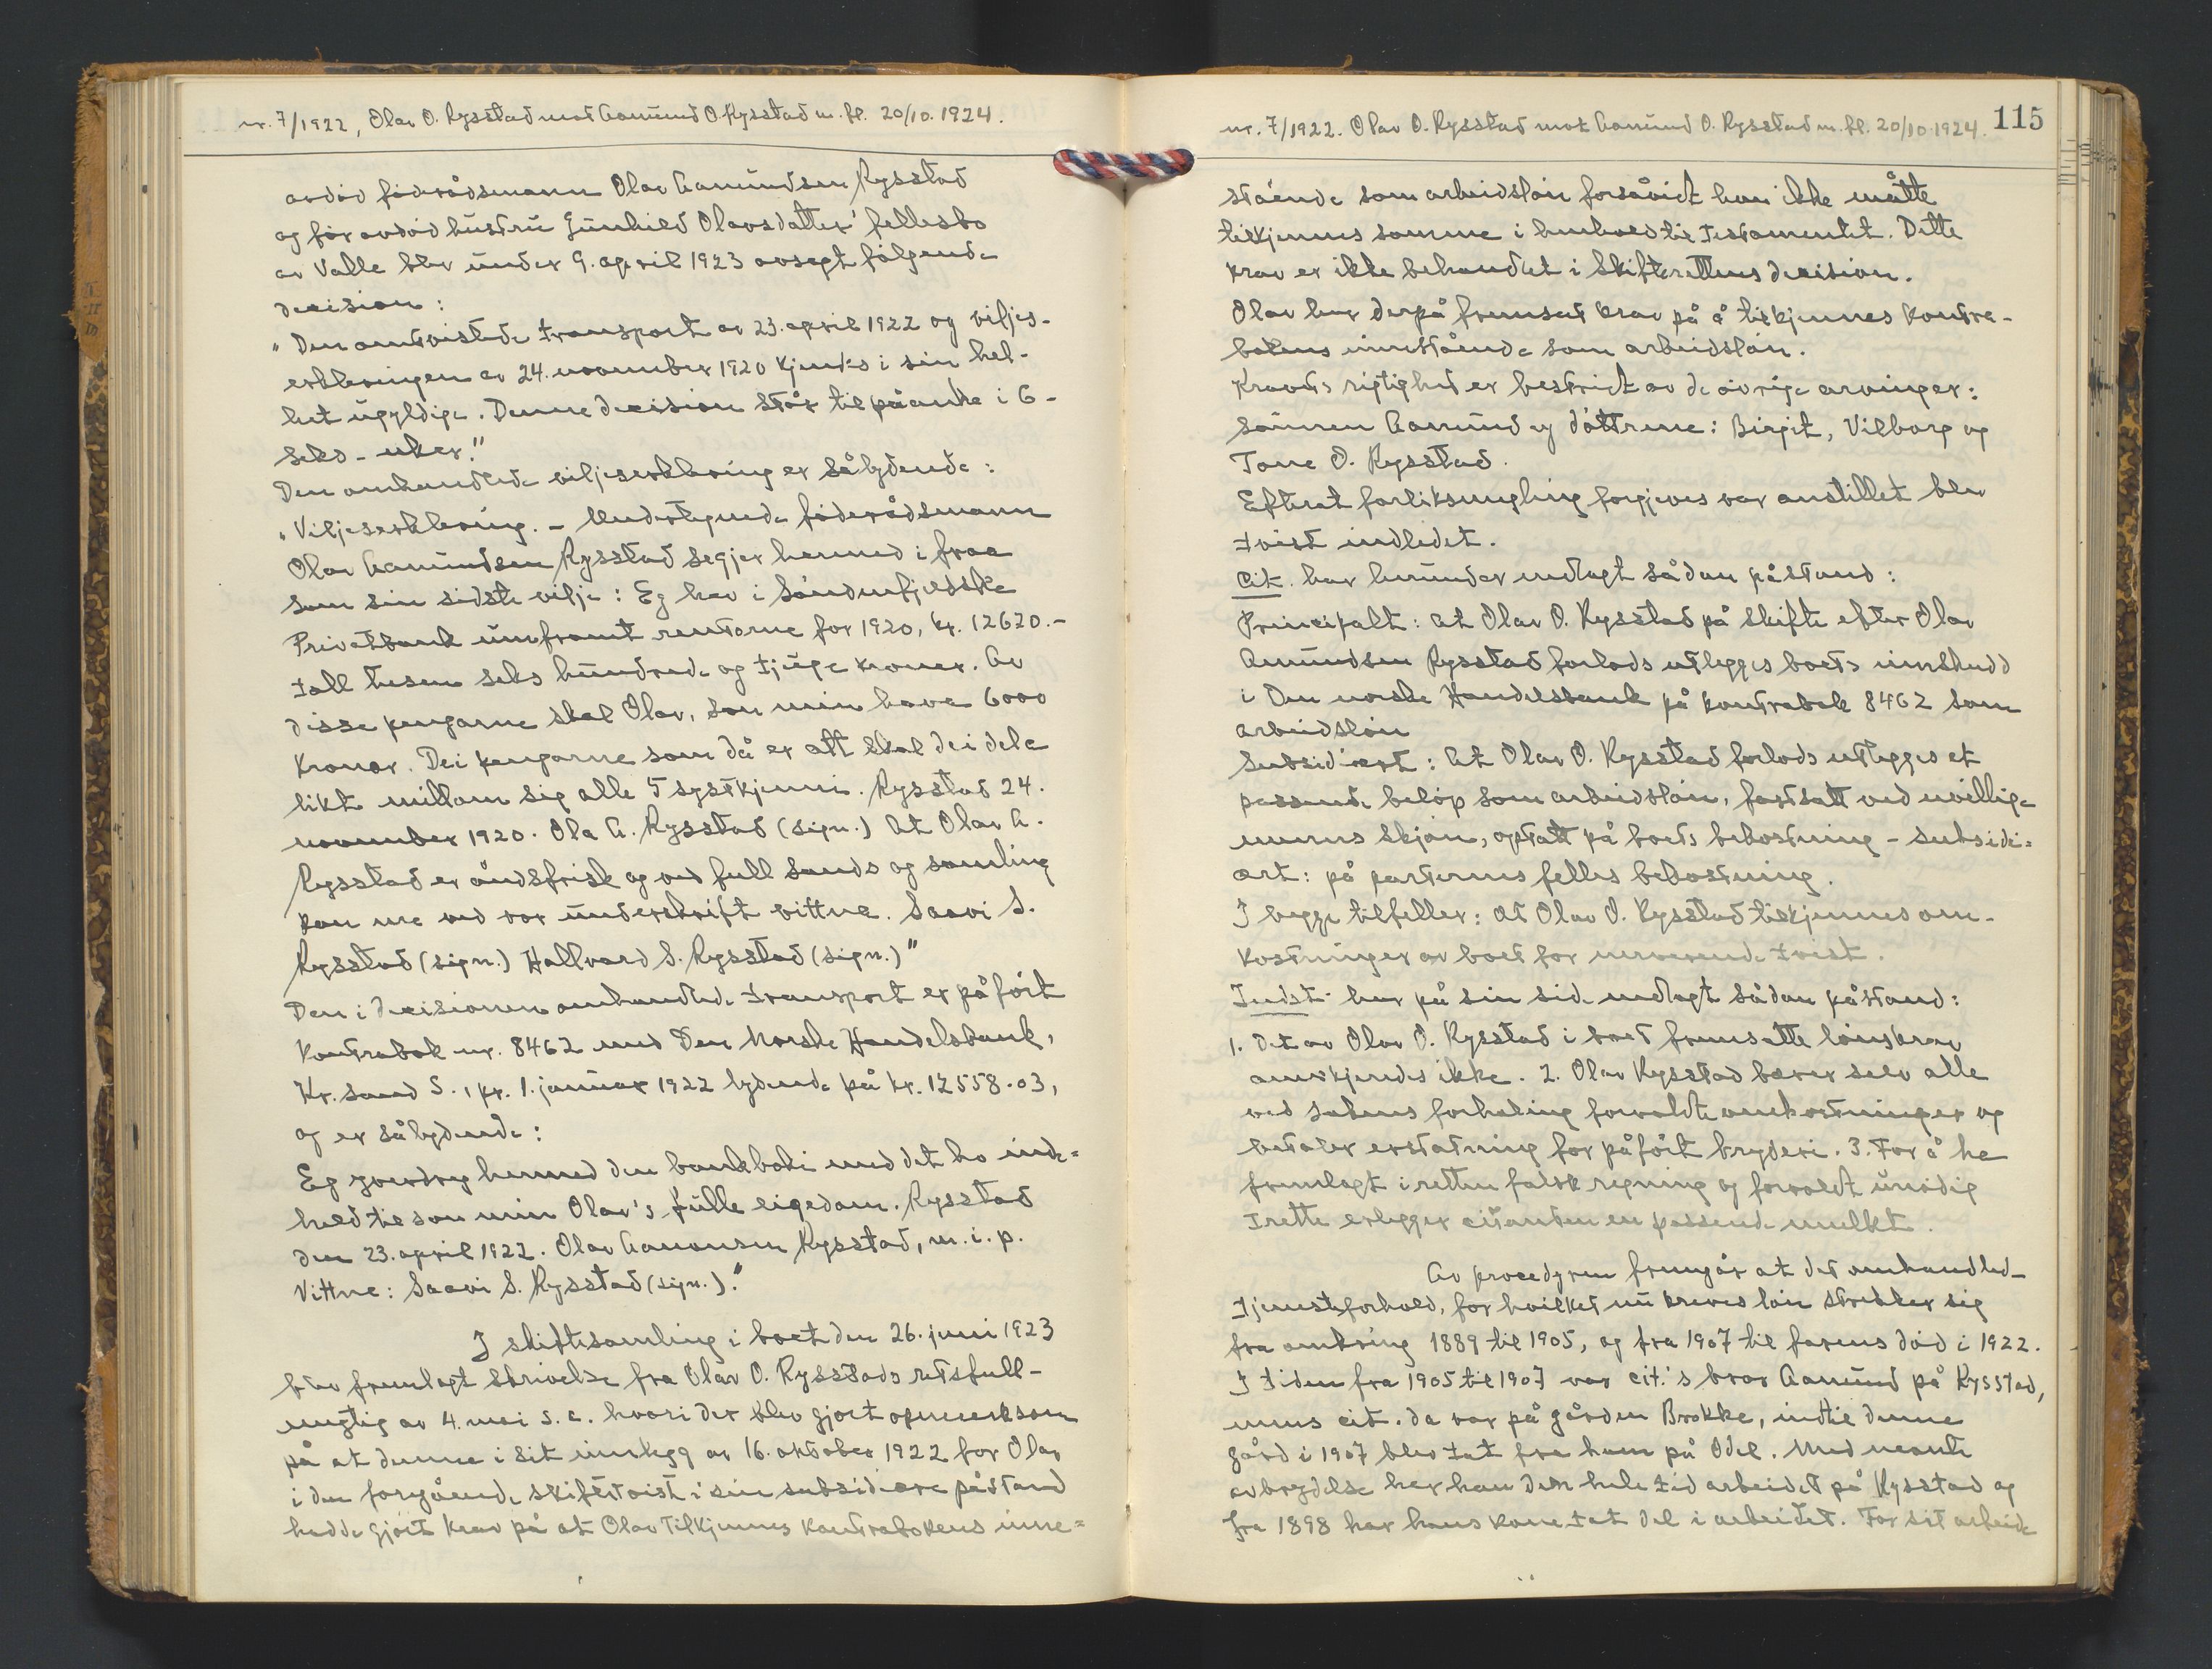 nr. 7/1922, Olav O. Rysstad mot Aamund O. Rysstad m. fl. 20/10. 1924.
avdød føderådsmann Olav Aamundsen Rysstad
og før avdød hustru Gunhild Olavsdatter' fellesbo
av Valle blev under 9. april 1923 avsagt følgende
decision:
"Den omtvistede transport av 23. april 1922 og viljes-
erkleringen av 24. november 1920 kjendes i sin hel-
het ugyldige. Denne decision står til påanke i 6 -
seks - uker."
Den omhandlede viljeserklering er sålydende:
"Viljeserklering. - Undertegnede føderådsmann
Olav Aamundsen Rysstad segjer hermed ifraa
som sin sidste vilje: Eg hev i Søndenfjeldske
Privatbank umframt rentorne for 1920, kr. 12620.-
tolv tusen seks hundrede og tjuge kroner. Av
disse pengarne skal Olav, son min hava 6000
kronor. Dei pengarne som då er att skal dei dela
likt millom sig alle 5 systkjenni. Rysstad 24.
november 1920. Ola A. Rysstad (sign.) At Olav A.
Rysstad er åndsfrisk og ved full sands og samling
kan me ved vor underskrift vittne. Saavi S.
Rysstad (sign.) Hallvard S. Rysstad (sign.)"
Den i decisionen omhandlede transport er påført
Kontrabok nr. 8462 med Den Norske Handelsbank,
Kr.sand S., pr. 1. januar 1922 lydende på kr. 12558.03,
og er sålydende:
Eg yverdreg hermed den bankboki med det ho inde=
held til son min Olav's fulle eigedom. Rysstad
den 23. april 1922. Olav Aamonsen Rysstad, m. i. p.
Vittne: Saavi S. Rysstad (sign.)."
I skiftesamling i boet den 26. juni 1923
blev fremlagt skrivelse fra Olav O. Rysstads retsfull-
megtig av 4. mai s. a. hvori der blev gjort opmerksom
på at denne i sit innlegg av 16. oktober 1922 for Olav
i den foregående skiftetvist i sin subsidiære påstand
hadde gjort krav på at Olav tilkjennes kontrabokens inne=
nr. 7/1922. Olav O. Rysstad mot Aamund O. Rysstad m. fl. 20/10. 1924. 115
stående som arbeidsløn forsåvidt han ikke måtte
tilkjennes samme i henhold til testamentet. Dette
krav er ikke behandlet i skifterettens decision.
Olav har derpå fremsat krav på å tilkjennes kontra-
bokens innestående som arbeidsløn.
Kravets rigtighet er bestridt av de øvrige arvinger:
sønnen Aamund og døttrene: Birgit, Vilborg og
Tone O. Rysstad.
Efterat forliksmegling forgjeves var anstillet blev
tvist indledet.
Cit. har herunder nedlagt sådan påstand:
Principalt: at Olav O. Rysstad på skifte efter Olav
Amundsen Rysstad forlods utlegges boets innskudd
i Den norske Handelsbank på kontrabok 8462 som
arbeidsløn
Subsidiært: At Olav O. Rysstad forlods utlegges et
passende beløp som arbeidsløn, fastsatt ved uvillige
menns skjøn, optatt på boets bekostning - subsidi=
ært: på parternes felles bekostning.
I begge tilfeller: At Olav O. Rysstad tilkjennes om-
kostninger av boet for nerverende tvist.
Indst. har på sin side nedlagt sådan påstand:
1. Det av Olav O. Rysstad i boet fremsatte lønskrav
anerkjendes ikke. 2. Olav Rysstad bærer selv alle
ved sakens forhaling forvoldte omkostninger og
betaler erstatning for påført bryderi. 3. For å ha
fremlagt i retten falsk regning og forvoldt unødig
trette erlegger citanten en passende mulkt.
Av procedyren fremgår at det omhandled-
tjenesteforhold, for hvilket nu kreves løn strekker sig
fra omkring 1889 til 1905, og fra 1907 til farens død i 1922.
I tiden fra 1905 til 1907 var cit.'s bror Aamund på Rysstad,
mens cit. da var på gården Brokke, indtil denne
gård i 1907 blev tat fra ham på Odel. Med nevnte
avbrydelse har han den hele tid arbeidet på Rysstad og
fra 1898 har hans kone tat del i arbeidet. For sit arbeide